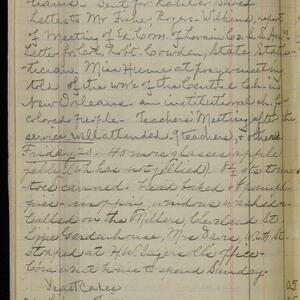 Sent for
Letters to Mr. Fisher, Rogers Wilkins, report
of Meeting of Ex. Com. of Lorain Co. S. S. Ass'n
Letter for Col. Robt. Cowden, State Statis-
tician. Miss Hume at prayer meeting
told of the work of the Central Ch. in
New Orleans - an institutional ch. for
colored people - Teachers' Meeting after the
service well attended 9 teachers, & others
Friday 20. 40 more glasses apple
jelly has not jellied). toma-
toes canned - bread baked & pumpkin
pies - mopping, windows washed -
Called on the Millers Cleveland St
Lizzie Gardenhouse, Mrs Davis, St.
stopped at H. W. Ingersoll's office -
Cora went home to spend Sunday.
Yeast Cakes 05